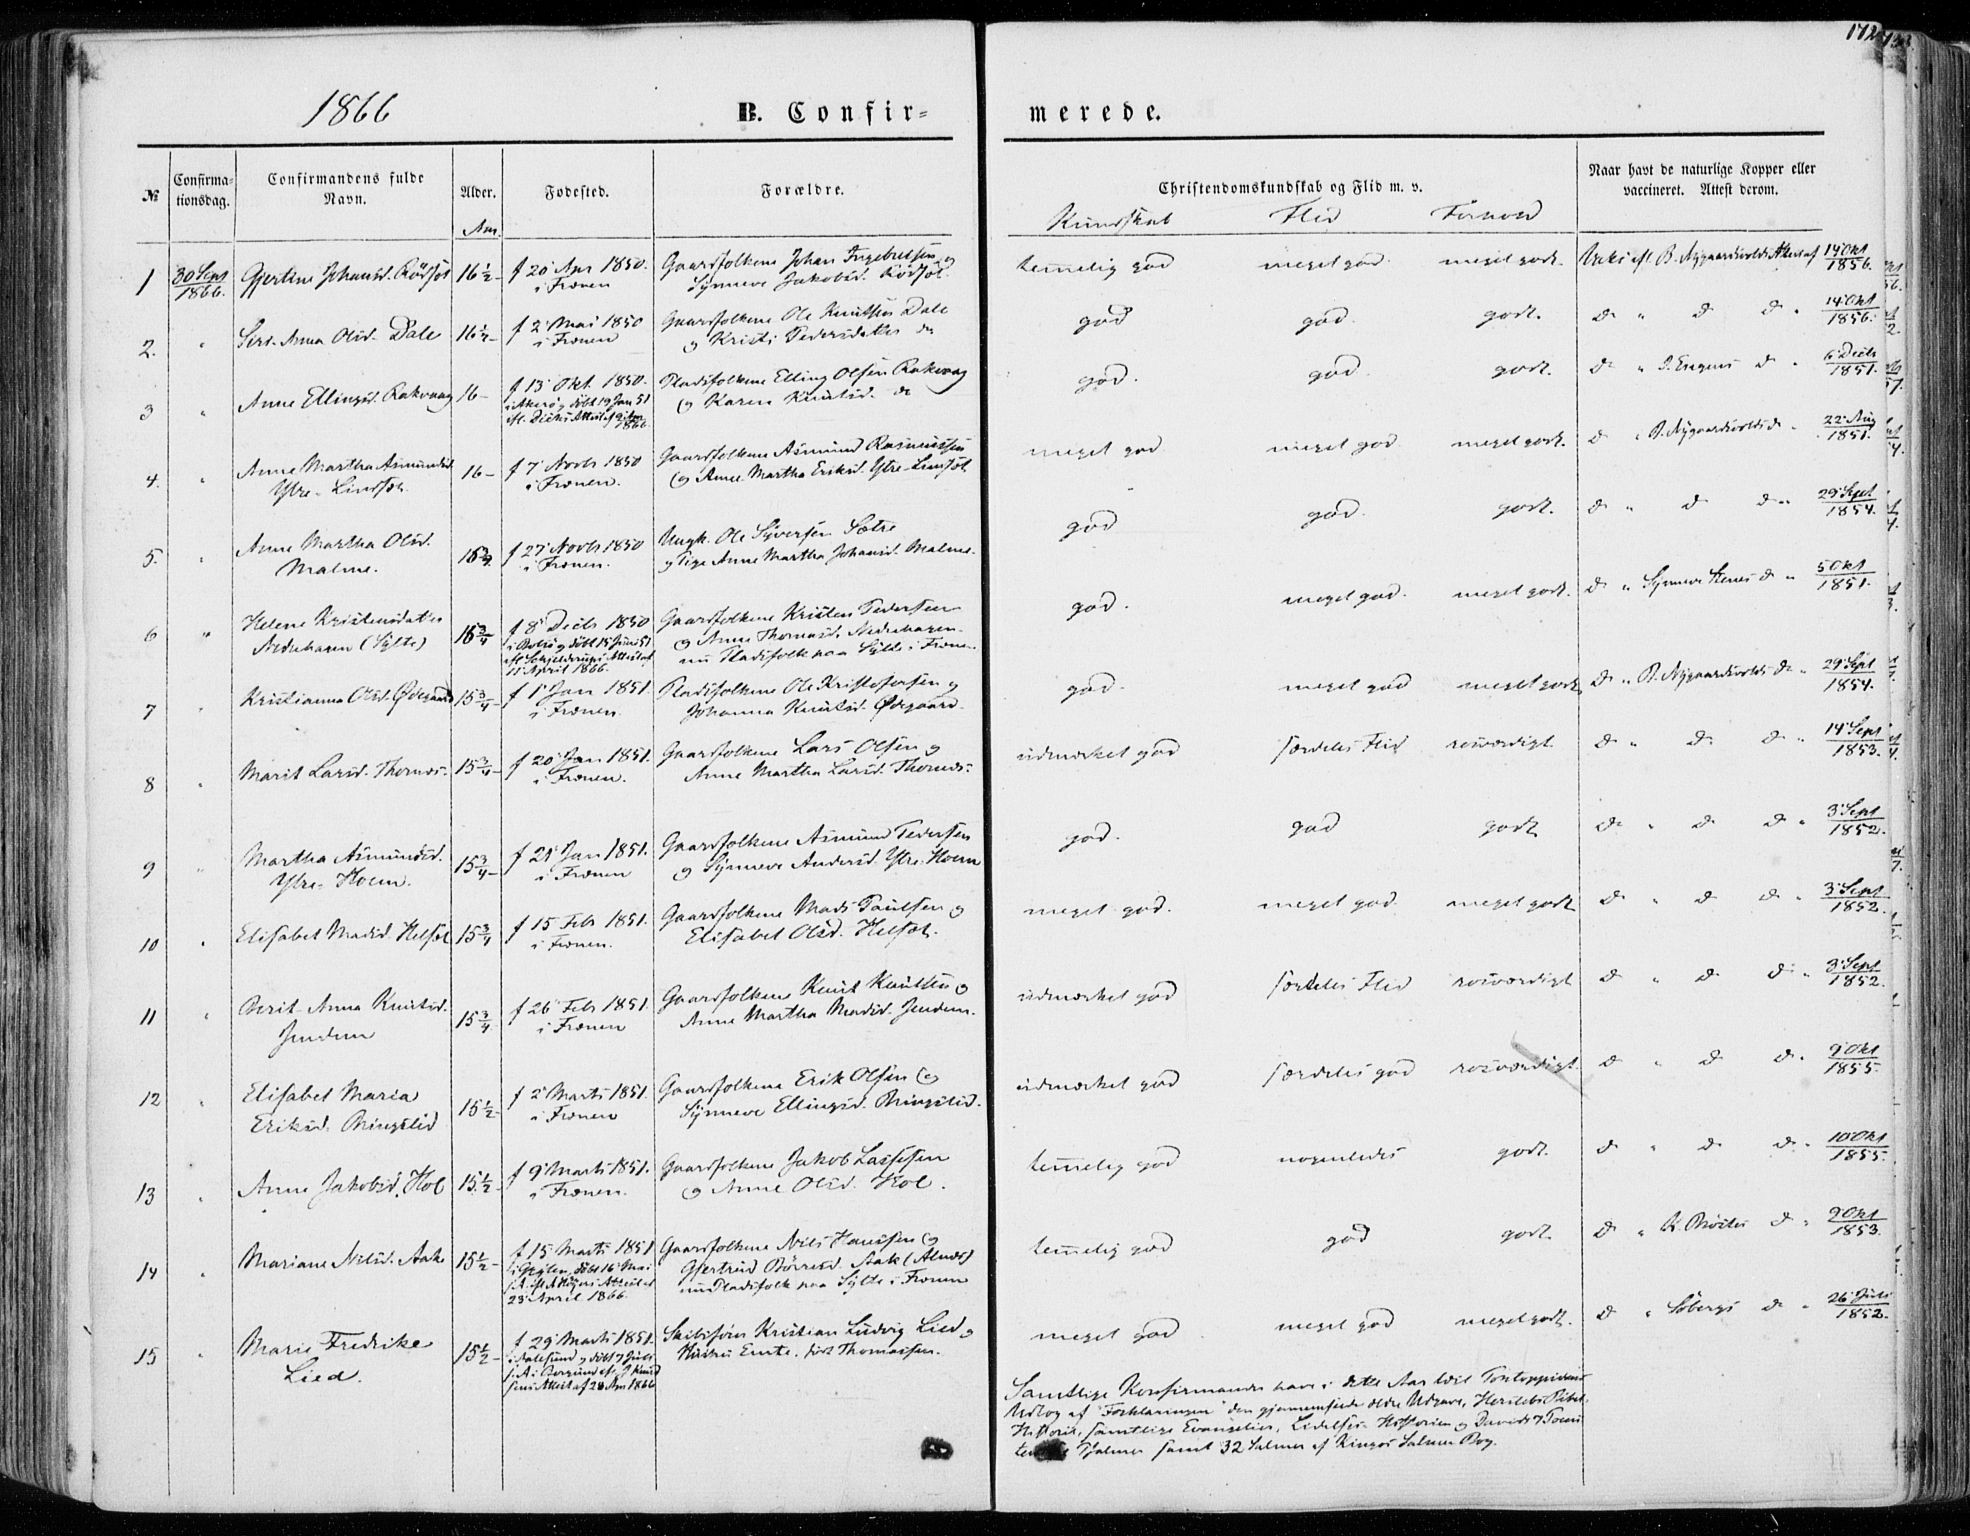 172
1866
B. Confir=
merede.
№
Confirma-
tionsdag.
Confirmandens fulde
Navn.
Alder.
Aar.
Fødested.
Forældre.
Christendomskundskab og Flid m. v.
Kundskab Flid Forhold
Naar havt de naturlige Kopper eller
vaccineret. Attest derom.
1 30 Sept 1866. Gjertine Johansd. Rödsjöt 16½ f 20 Apr 1850. i Frænen Gaardfolkene Johan Ingebretsen og Synneve Jakobsd. Rödsjöt temelig god meget god. meget godt. B. Nygaardsvolds Attest af 14 Okt 1856.
2. " Anna Olsd. Dale 16½ f 2 Mai 1850 i Frænen Gaardfolkene Ole Knutsen Dale og Kristi Pedersdatter do god god. godt. do " do do " 14 Okt 1856.
3 " Anne Ellingsd. Rakvaag 16 f 13 Okt. 1850. i Akerö og döbt 19 Jan 51 Pladsfolkene Elling Olsen Rakvaag og Karen Knutsd. do god. god. godt. do " do " 6 Decb 1851.
4. " Anne Martha Asmundsd. Ytre-Lindset 16 f 7 Novb 1850 i Frænen. Gaardfolkene Asmund Rasmussen og Anne Martha Eriksd. Ytre-Lindset meget god meget god meget godt. do " B. Nygaardsvolds do " 22 Aug 1851.
5. " Anne Martha Olsd. Malme. 15¾ f 27 Novb 1850 i Frænen. Ungk. Ole Syversen Sætre og Pige Anne Martha Johansd. Malme. god god. godt. do " do do " 29 Sept 1854.
6 " Helene Kristensdatter Nedrehagen (Sylte) 15¾ f 8 Decb 1850 i Bolsö og döbt 15 Juni 51 eft. Schjelderups Attest af 11 April 1866. Gaardfolkene Kristen Pedersen og Anne Thomasd. Nedrehagen nu Pladsfolk paa Sylte i Frænen god. meget god. meget godt. do " Synneve do " 5 Okt 1851.
7 " Kristianna Olsd. Ödegaard 15¾ f 1 Jan 1851. i Frænen. Pladsfolkene Ole Kristofersen og Johanna Knutsd. Ödegaard god. meget god meget godt do " B. Nygaardsvolds do " 29 Sept 1854.
8 " Marit Larsd. Thornæs. 15¾ f 20 Jan 1851. i Frænen. Gaardfolkene Lars Olsen og Anne Martha Larsd. Thornæs. udmærket god særdeles Flid rosværdigt do " do do " 14 Sept 1853.
9 " Martha Asmundsd. Ytre-Hoem. 15¾ f 21 Jan 1851. i Frænen Gaardfolkene Asmund Pedersen og Synneve Andersd. Ytre-Hoem god. god godt do " do do " 3 Sept 1852.
10 " Elisabet Madsd. Helset 15¾ f 15 Feb 1851. i Frænen. Gaardfolkene Mads Paulsen og Elisabet Olsd. Helset. meget god. meget god. meget godt do " do do " 3 Sept 1852.
11 " Berit-Anna Knutsd. Jendem 15¾ f 26 Feb 1851. i Frænen Gaardfolkene Knut Knutsen og Anne Martha Madsd. Jendem. udmærket god særdeles Flid rosværdigt do " do do " 3 Sept 1852.
12 " Elisabet Maria Eriksd. Ringslid 15½ f 2 Marts 1851. i Frænen Gaardfolkene Erik Olsen og Synneve Ellingsd. Ringslid. udmærket god særdeles god rosværdigt do " do do " 9 Okt 1855.
13 " Anne Jakobsd. Hol 15½ f 9 Marts 1851. i Frænen. Gaardfolkene Jakob Lassesen og Anne Olsd. Hol. temelig god nogenledes godt. do " do do " 10 Okt 1855.
14 " Mariane Nilsd. Aak 15½ f 15 Marts 1851 döbt 16 Mai Attest af 23 April 1866. Gaardfolkene Nils Hansen og Gjertrud Börresd. Aak (Alnæs) nu Pladsfolk paa Sylte i Frænen temelig god god godt. do " do " 9 Okt 1853.
15 " Marie Fredrike Lied. 15½ f 29 Marts 1851. i Aalesund og döbt 7 Juli i Borgund Attest af 28 Apr 1866 Skibsförer Kristian Ludvig Lied og Hustru född Thomassen. meget god meget god meget godt. do " Söbergs do " 26 Juli 1852.
Samtlige Konfirmander have i dette Aar læst Pontoppidans
Udtog af "Forklaringen" den gjennemsede ældre Udgave, Herslebs Bibel-
Historie, samtlige Evangelier, Lidelses-Historien og Davids 7 Poeni
Psalmer samt 32 Salmer af Kingos Salme Bog.